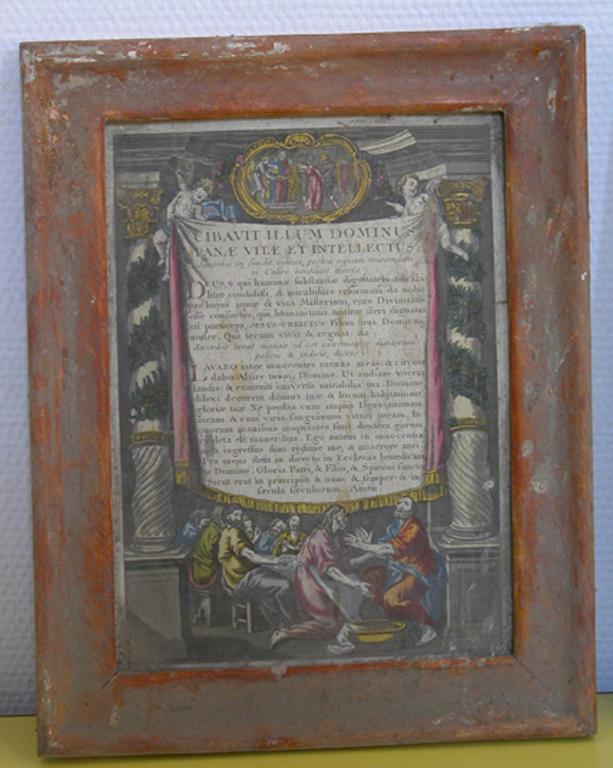 CIBAVIT ILLUM DOMINUS
PANÆ VITÆ ET INTELLECTUS
in Calice benedicit dicens
DEUS, qui humanæ substantiæ dignitatem mirabi
liter condidisti, & mirabilius reformasti da nobis
per hujus aquæ & vini Misterium, ejus Divinitatis
esse consortes, qui humanitatis nostræ fieri dignatus
est particeps, JESUS-CHRISTUS Filius tuus Dominus
noster. Qui tecum vivit & regnat. &c
Sacerdos lavat manus id est extremitates digitorum
pollicis & indicis, dicens
LAVABO inter innocentes manus meas: & circum
dabo Altare tuum, Domine. Ut audiam vocem
laudis: & enarrem universa mirabilia tua. Domine
dilexi decorem domus tuæ, & locum habitationis
gloriæ tuæ Ne perdas cum impiis Deus animam
meam: & cum viris sanguinum vitam meam. In
quorum manibus iniquitates sunt, dextera eorum
repleta est muneribus. Ego autem in innocentia
mea ingressus sum redime me, & miserere mei.
Pes meus stetit in directo in Ecclesiis benedicam
te Domine, Gloria Patri, & Filio, & Spiritui sancto
Sicut erat in principio & nunc & semper & in
sæcula sæculorum. Amen.